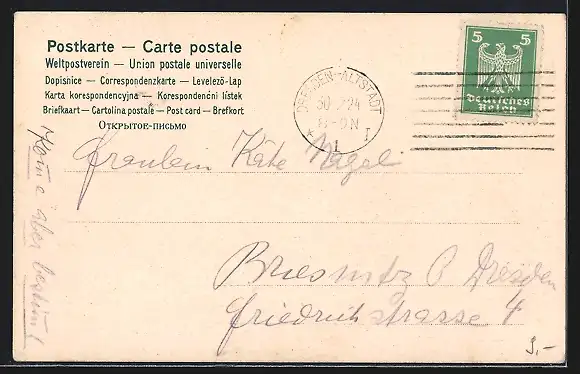 Postkarte — Carte postale
Weltpostverein — Union postale universelle
Dopisnice — Correspondenzkarte — Levelező-Lap
Karta korespondencyjna — Korespondenční lístek
Briefkaart — Cartolina postale — Post card — Brefkort
ОТКРЫТОЕ-ПИСЬМО
DRESDEN-ALTSTADT
8-9 N
* 1 I
5 5
Deutsches
Reich
Fräulein Käte Nagel
Briesnitz b Dresden
Friedrichstrasse 4
Komme aber bestimmt
3,-